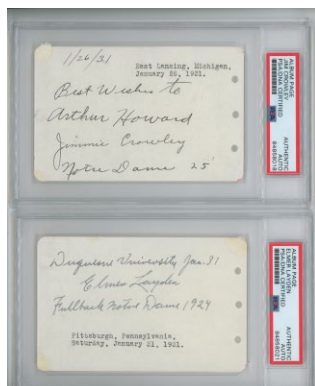 1/26/31
East Lansing, Michigan,
January 26, 1931.
Best Wishes to
Arthur Howard
Jimmie Crowley
Notre Dame 25'
ALBUM PAGE
JIM CROWLEY
PSA/DNA CERTIFIED
AUTHENTIC
AUTO
84868018
Duquesne University Jan. 31
Elmer Layden
Fullback Notre Dame 1924
Pittsburgh, Pennsylvania,
Saturday, January 31, 1931.
ALBUM PAGE
ELMER LAYDEN
PSA/DNA CERTIFIED
AUTHENTIC
AUTO
84868021